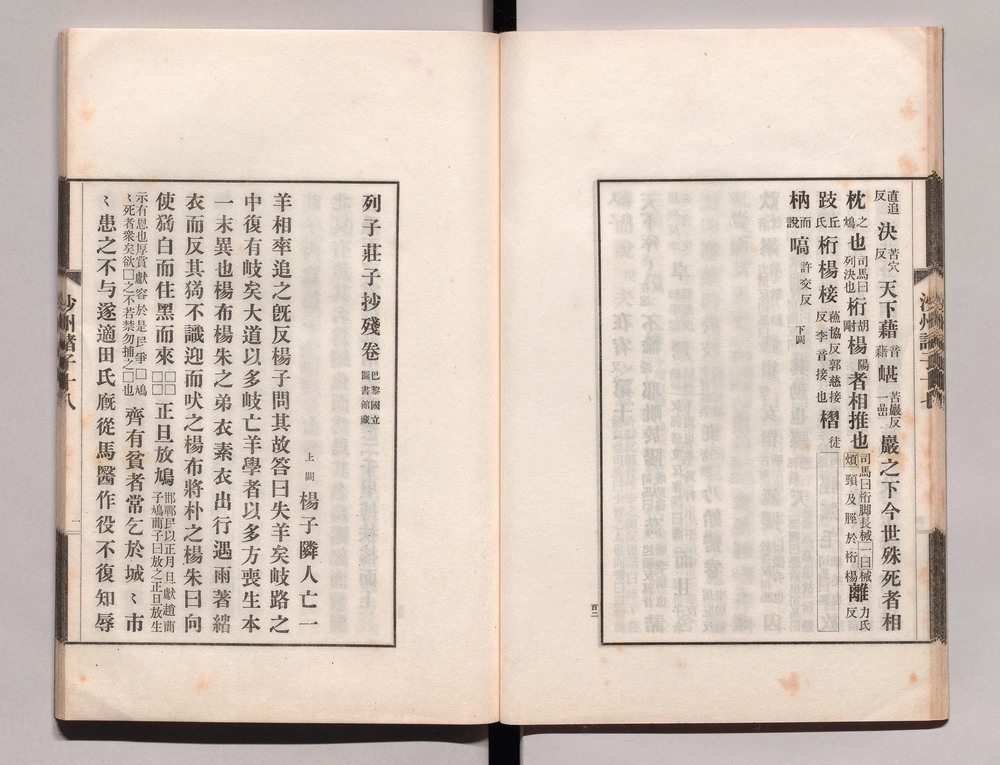 直追反決苦穴反天下藉音藉嵁苦巖反一嵒巖之下今世殊死者相
枕之鴆也司馬曰列決也桁胡剛楊陽者相推也司馬曰桁脚長械一曰械頸及脛於桁楊離力氏反
跂丘氏桁楊椄蕉協反郭慈接反李音接也槢徒
枘而說嗃許交反下闕
百二
沙州諸子十七
列子莊子抄殘卷巴黎國立圖書館藏
上闕楊子隣人亡一
羊相率追之旣反楊子問其故答曰失羊矣岐路之
中復有岐矣大道以多岐亡羊學者以多方喪生本
一末異也楊布楊朱之弟衣素衣出行遇雨著緇
衣而反其猲不識迎而吠之楊布將朴之楊朱曰向
使猲白而住黑而來□□□□正旦放鳩邯鄲民以正月旦獻趙蕳子鳩蕳子曰放之正旦放生
示有恩也厚賞獻容於是民爭□鳩〻死者衆矣欲□之不若禁勿捕之□也齊有貧者常乞於城〻市
〻患之不与遂適田氏廐從馬醫作役不復知辱
沙州諸子十八
一